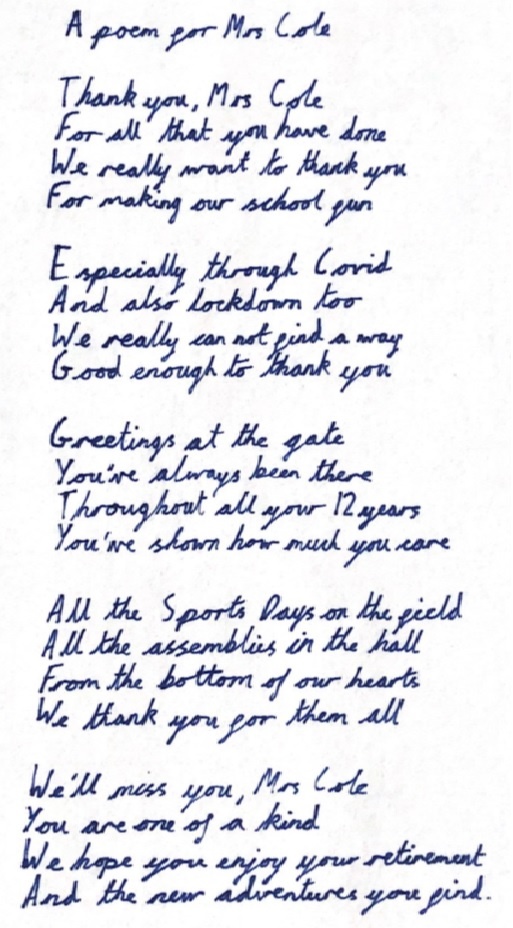 A poem for Mrs Cole
Thank you, Mrs Cole
For all that you have done
We really want to thank you
For making our school fun
Especially through Covid
And also lockdown too
We really can not find a way
Good enough to thank you
Greetings at the gate
You've always been there
Throughout all your 12 years
You've shown how much you care
All the Sports Days on the field
All the assemblies in the hall
From the bottom of our hearts
We thank you for them all
We'll miss you, Mrs Cole
You are one of a kind
We hope you enjoy your retirement
And the new adventures you find.